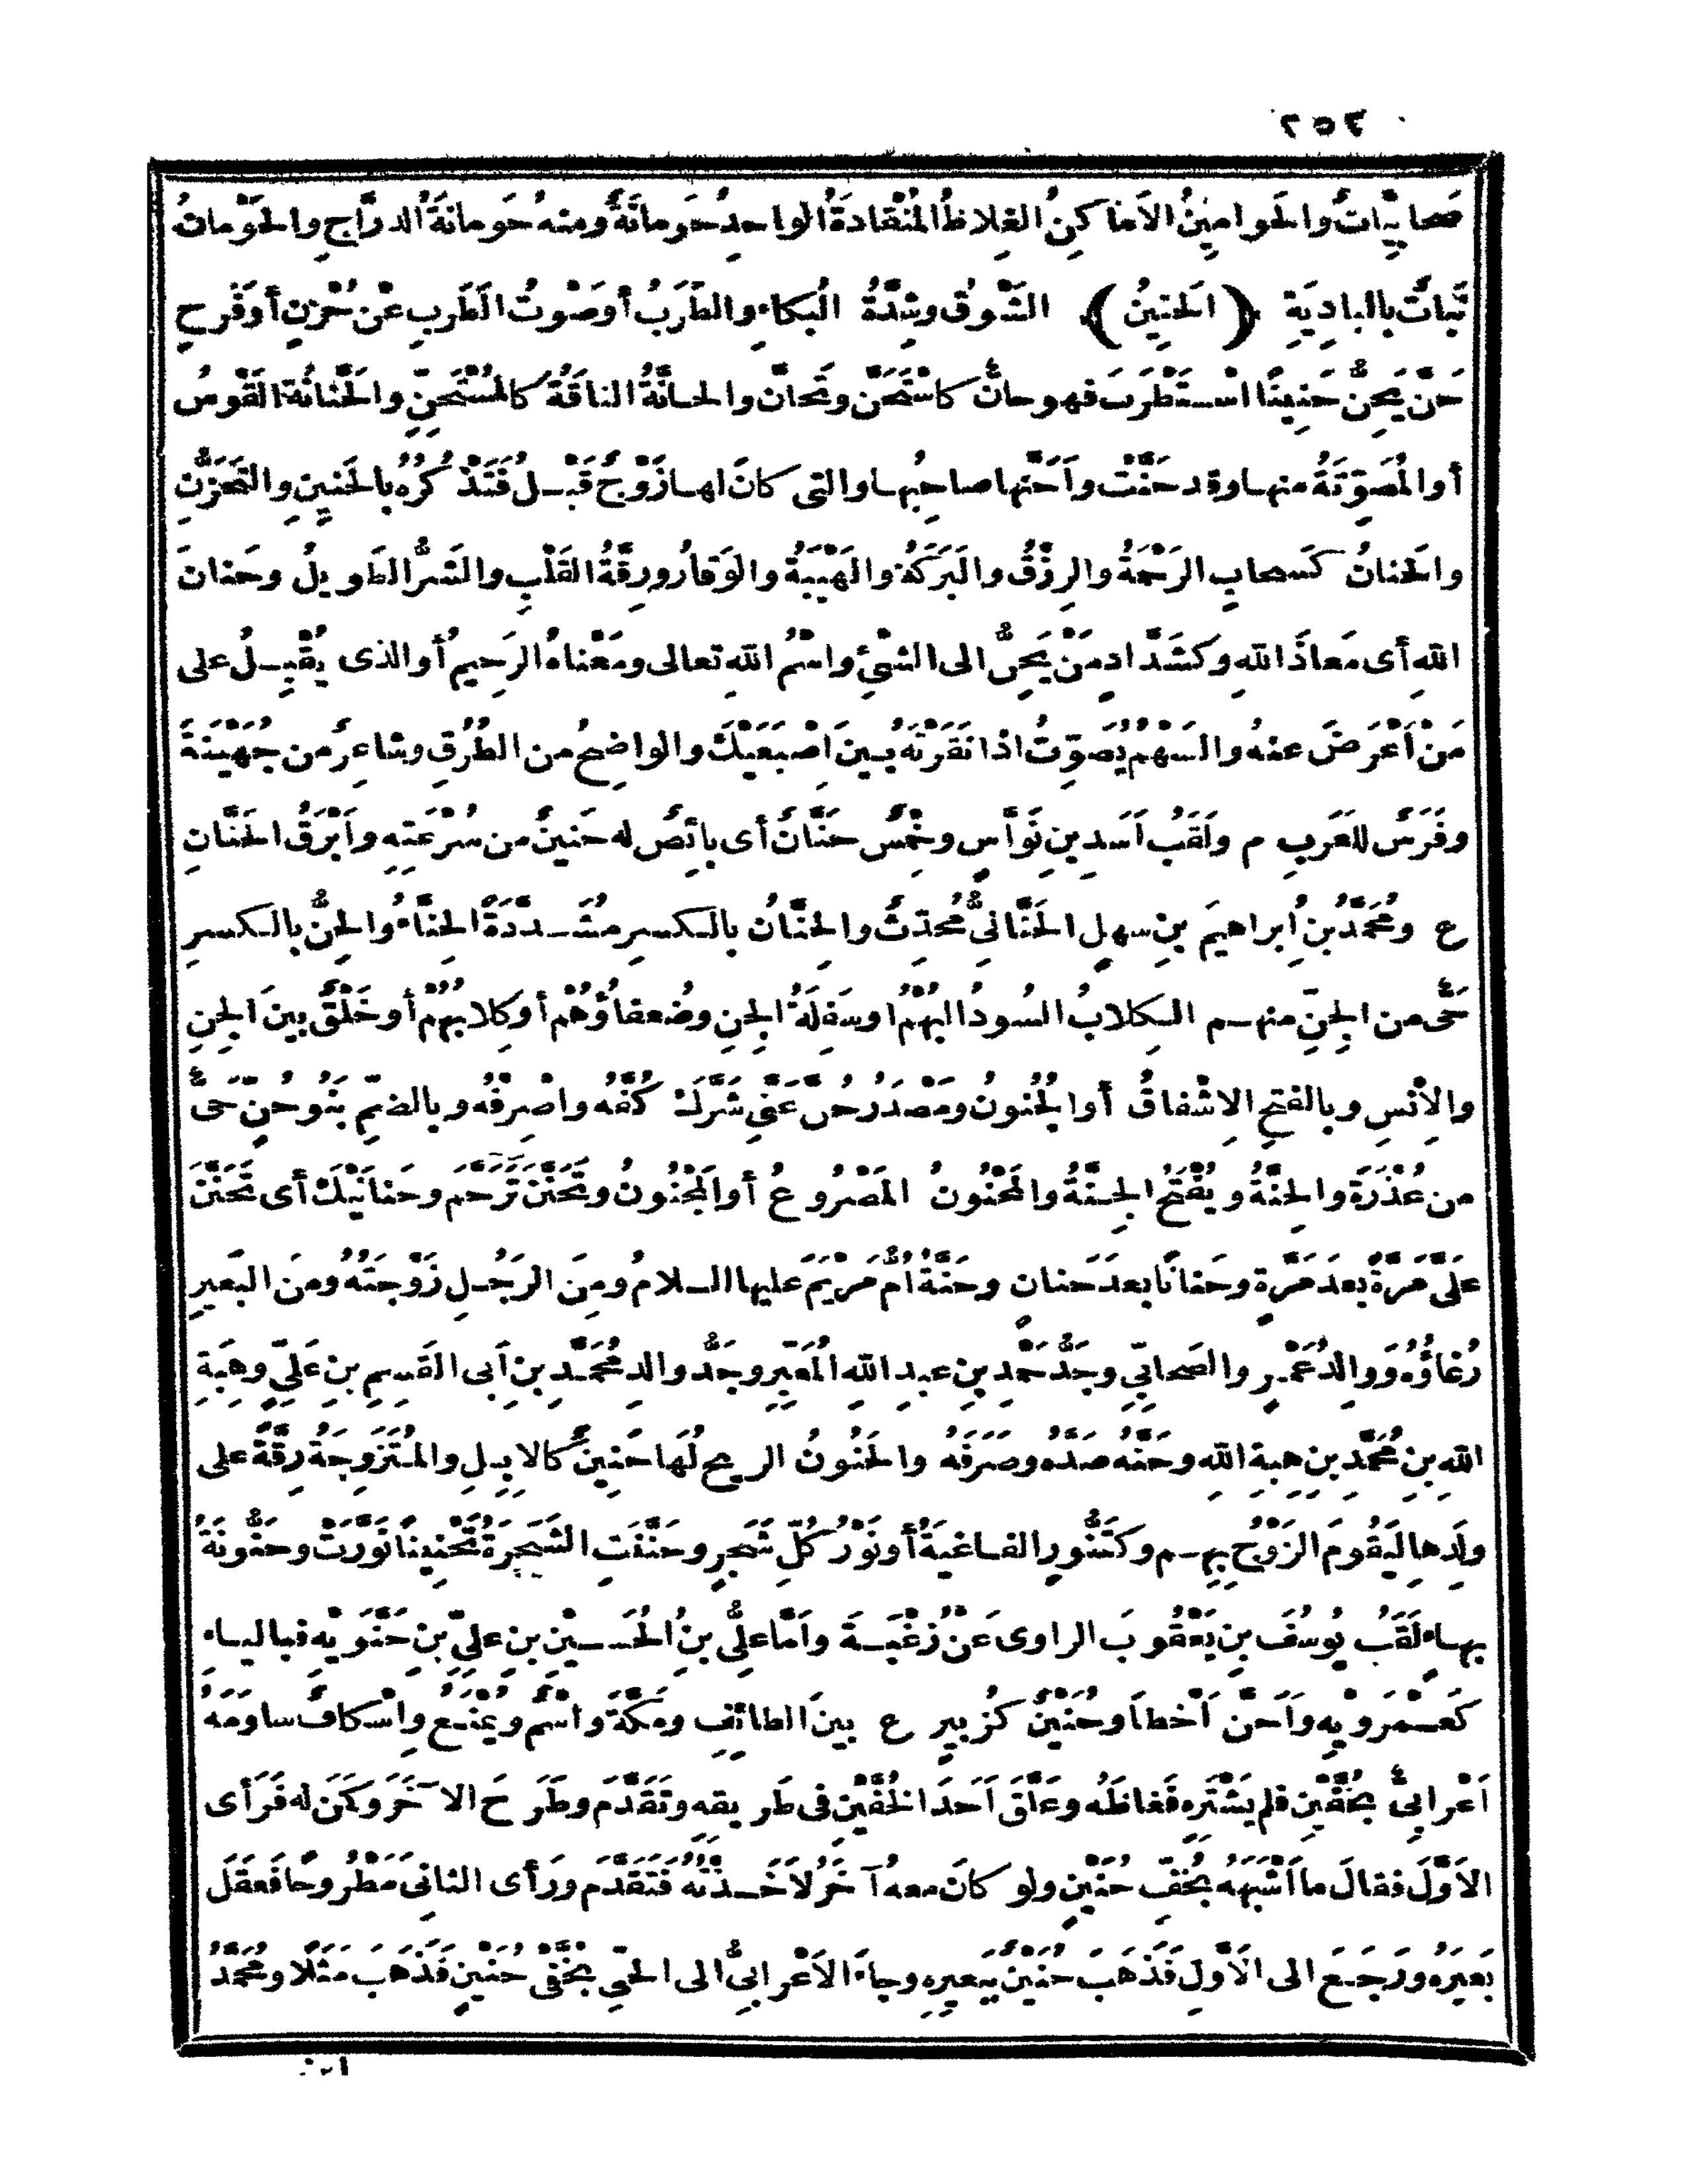 ٢٥٤
صَحابِيَّاتٌ والحَوامِينُ الاَماكِنُ الغِلاظُ المُنْقادَةُ الواحِدُ حَومانَةٌ ومنه حَومانَةُ الدرَّاجِ والحَوْمانُ
نَباتٌ بالبادِيَةِ ﴿ الحَنِينُ ﴾ الشَّوْقُ وشِدَّةُ البُكاءِ والطَّرَبُ أوصَوْتُ الطَّرَبِ عَنْ حُزْنٍ أوفَرَحٍ
حَنَّ يَحِنُّ حَنِينًا اسْتَطْرَبَ فهو حانٌّ كاسْتَحَنَّ وتَحانَّ والحانَّةُ الناقَةُ كالمُسْتَحِنِّ والحَنَّانَةُ القَوْسُ
أوالمُصَوِّتَةُ منها وقد حَنَّتْ وأحَنَّها صاحِبُها والتى كانَ لها زَوْجٌ قَبْلُ فَتَذْكُرُهُ بالحَنِينِ والتَحَزُّنِ
والحَنانُ كسَحابٍ الرَحْمَةُ والرِزْقُ والبَرَكَةُ والهَيْبَةُ والوَقارُ ورِقَّةُ القَلْبِ والشَرُّ الطَويلُ وحَنانَ
اللهِ أى مَعاذَ اللهِ وكشَدَّادٍ مَنْ يَحِنُّ الى الشَيْئِ واسْمُ اللهِ تعالى ومَعْناهُ الرَحِيمُ أوالذى يُقْبِلُ على
مَنْ أعْرَضَ عنه والسَهْمُ يُصَوِّتُ اذا نَقَرْتَهُ بينَ إصْبَعَيْكَ والواضِحُ من الطُرُقِ وشاعِرٌ من جُهَيْنَةَ
وفَرَسٌ للعَرَبِ م ولَقَبُ أسَدِ بنِ نَوَّاسٍ وخِمْسٌ حَنَّانٌ أى بائِصٌ له حَنينٌ من سُرْعَتِهِ وأبْرَقُ الحَنَّانِ
ع ومُحَمَّدُ بنُ إبراهيمَ بنِ سهلٍ الحَنَّانىُّ مُحَدِّثٌ والحِنَّانُ بالكسرِ مُشَدَّدَةً الحِنَّاءُ والحِنُّ بالكسرِ
حَىٌّ من الجِنِّ منهم الكِلابُ السُودُ البُهْمُ اوسَفِلَةُ الجِنِ وضُعفاؤُهُمْ أوكِلابُهُمْ أوخَلْقٌ بينَ الجِنِ
والإنْسِ وبالفتحِ الإشْفاقُ أوالجُنونُ ومَصْدَرُ حُنَّ عَنِّى شَرَّكَ كُفَّهُ واصْرِفْهُ وبالضمِّ بَنُوحُنٍّ حَىٌّ
من عُذْرَةَ والحِنَّةُ ويُفْتَحُ الجِنَّةُ والمَحْنُونُ المَصْرُوعُ أوالمَجْنُونُ وتَحَنَّنَ تَرَحَّمَ وحَنانَيْكَ أى تَحَنَّنَ
عَلَىَّ مَرَّةً بعدَ مَرَّةٍ وحَنانًا بعدَ حَنانٍ وحَنَّةُ أمُّ مَرْيَمَ عليها السلامُ ومِنَ الرَجُلِ زَوْجَتُهُ ومنَ البَعيرِ
رُغاؤُهُ ووالِدُ عَمْرٍو الصَحابِيِّ وجَدُّ حَمْدِ بنِ عبدِ اللهِ المُعَبِّرِ وجَدُّ والدِ مُحَمَّدِ بنِ أبى القَسِمِ بنِ عَلِيٍّ وهِبَةِ
اللهِ بنِ مُحَمَّدِ بنِ هِبةِ اللهِ وحَنَّهُ صَدَّهُ وصَرَفَهُ والحَنُونُ الريحُ لَها حَنِينٌ كالإبِلِ والمُتَزَوِّجَةُ رِقَّةً على
ولَدِها لِيَقُومَ الزَوْجُ بِهِم وكتَنُّورٍ الفاغِيَةُ أونَوْرُ كُلِّ شَجَرٍ وحَنَّنَتِ الشَجَرَةُ تَحْنِينًا نَوَّرَتْ وحَنُّونَةُ
بهاءٍ لَقَبُ يُوسُفَ بنِ يَعْقُوبَ الراوى عَنْ زُغْبَةَ وأمَّا علىُّ بنُ الحُسَيْنِ بنِ علِيِّ بنِ حَنَّوَيْهِ فبالياءِ
كعَمْرَوَيْهِ وأحَنَّ أخْطَأ وحُنَيْنٌ كزُبيرٍ ع بينَ الطائفِ ومَكَّةَ واسْمٌ ويُمْنَعُ وإسْكافٌ ساوَمَهُ
أعْرابىٌّ بخُفَّيْنِ فلم يَشْتَرِهِ فَغاظَهُ وعَلَّقَ أحَدَ الخُفَّيْنِ فى طَريقِهِ وتَقَدَّمَ وطَرَحَ الآخَرَ وكَمَنَ له فَرَأى
الأوَّلَ فقالَ ما أشْبَهَهُ بخُفِّ حُنَيْنٍ ولو كانَ معه آخَرُ لأخَذْتُهُ فتَقَدَّمَ ورَأى الثانىَ مَطْرُوحًا فَعقَلَ
بَعِيرَهُ ورَجَعَ الى الأوَّلِ فَذَهَبَ حُنَيْنٌ بِبَعِيرِهِ وجاءَ الأعْرابىُّ الى الحَيِّ بخُفَّىْ حُنَيْنٍ فَذَهَبَ مَثَلًا ومُحَمَّدُ
ابن